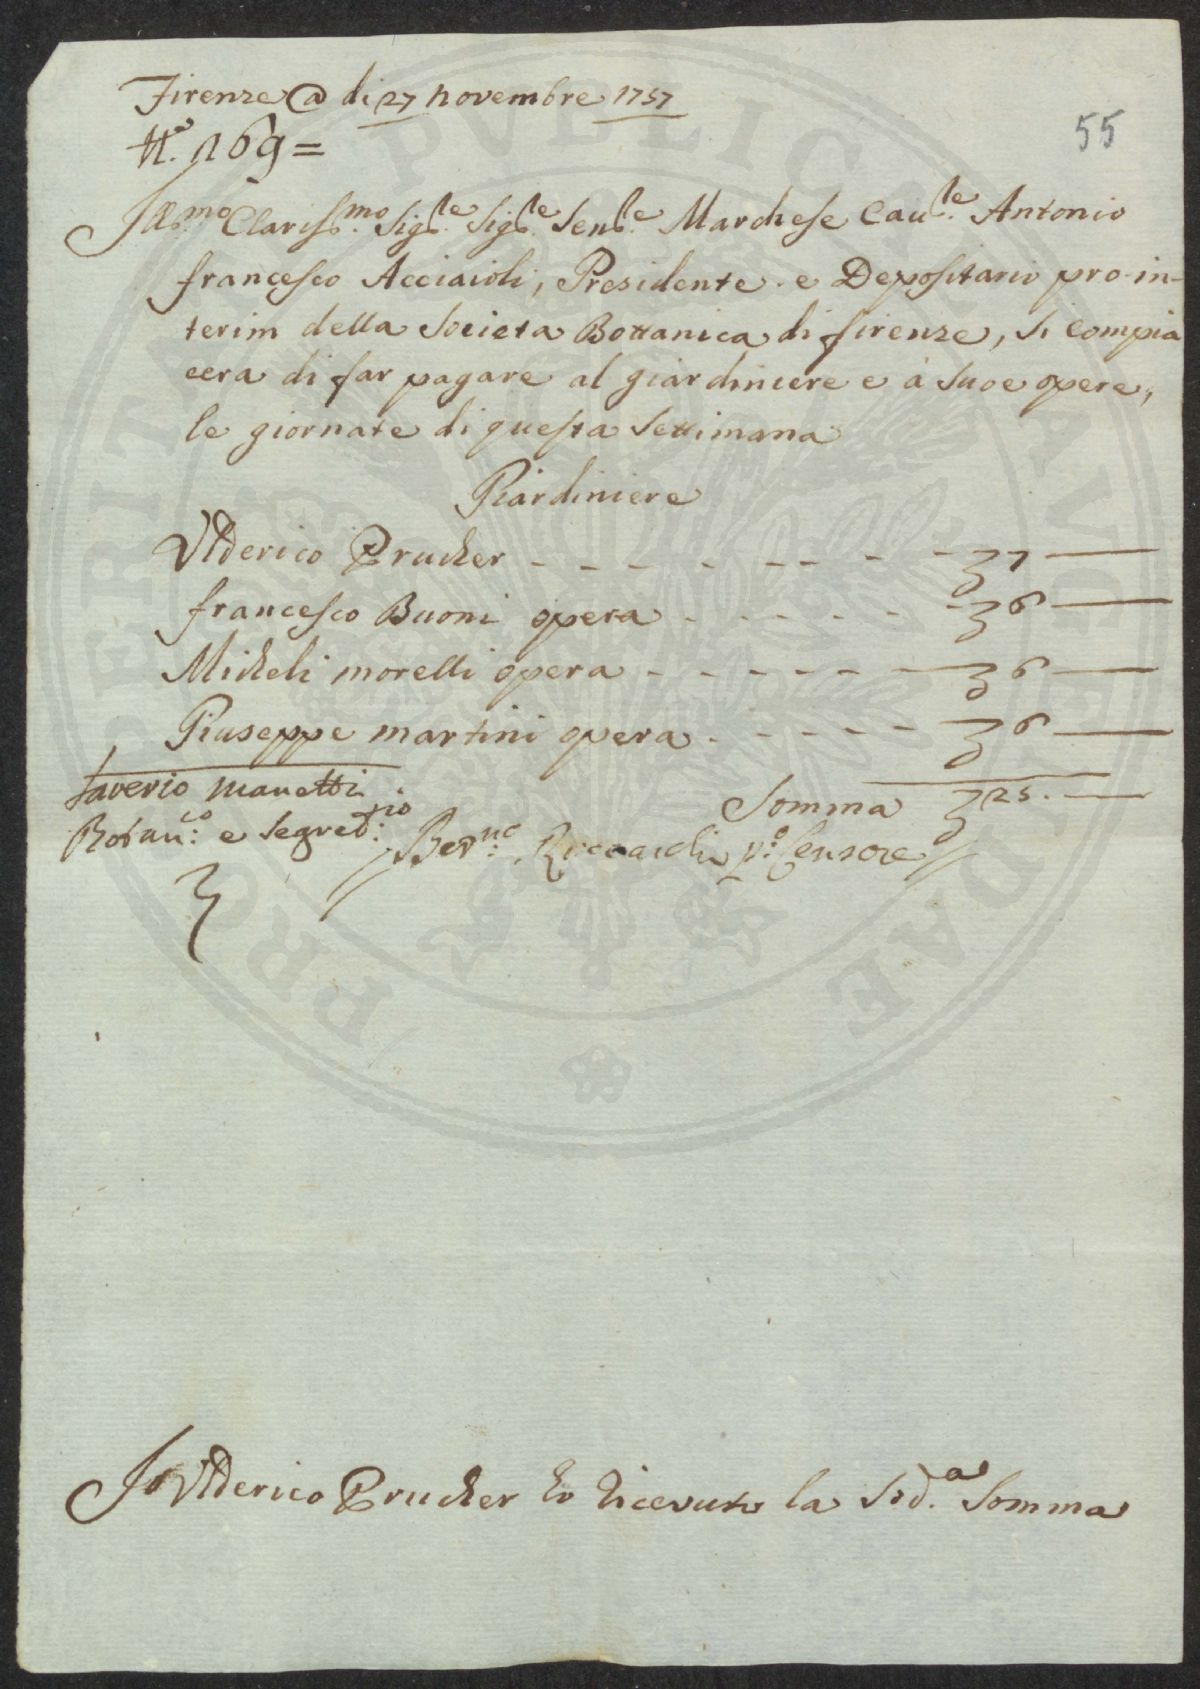 Firenze @ di 27 novembre 1757
N.º 169 =
55
Ill.mo Clariss.mo Sig.le Sig.le Sen.le Marchese Cau.le Antonio
francesco Acciaioli, Presidente e Depositario pro-in-
terim della Societa Bottanica di firenze, si compia
cera di far pagare al giardiniere e à suoe opere,
le giornate di questa Settimana
Giardiniere
Ulderico Prucker - - - - - - - - 7 —
francesco Buoni opera - - - - - - 6 —
Micheli morelli opera - - - - - - 6 —
Giuseppe martini opera - - - - - 6 —
Somma 25. —
Saverio Manetti
Botan.co e Segret.rio
Ber.ne Riccardi p.º Censore
Io Ulderico Prucker ho ricevuto la Sod.a Somma
PROSPERITATI PUBLICAE AUGENDAE